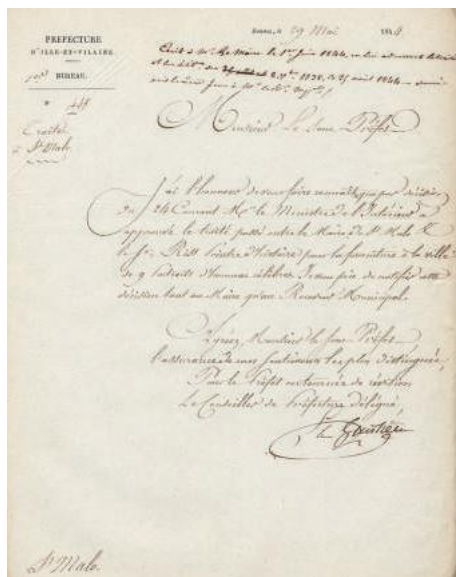 PREFECTURE
D'ILLE-ET-VILAINE.
BUREAU.
Rennes, le 29 Mai 184
Ecrit à Mr le Maire le 1er Juin 1844,
Nº
Traité
St Malo
Monsieur Le Sous Préfet
J'ai l'honneur de vous faire connaître que par décision
du 24 Courant Mr le Ministre de l'Intérieur a
approuvé le traité passé entre le Maire de St Malo &
le Sr Riss Peintre d'histoire pour la fourniture à la ville
de 9 portraits d'hommes célèbres. Je vous prie de notifier cette
décision tant au Maire qu'au Receveur Municipal.
Agréez, Monsieur le Sous Préfet,
l'assurance de mes sentiments les plus distingués,
Pour le Préfet en tournée de révision
Le Conseiller de Préfecture délégué,
St Malo.